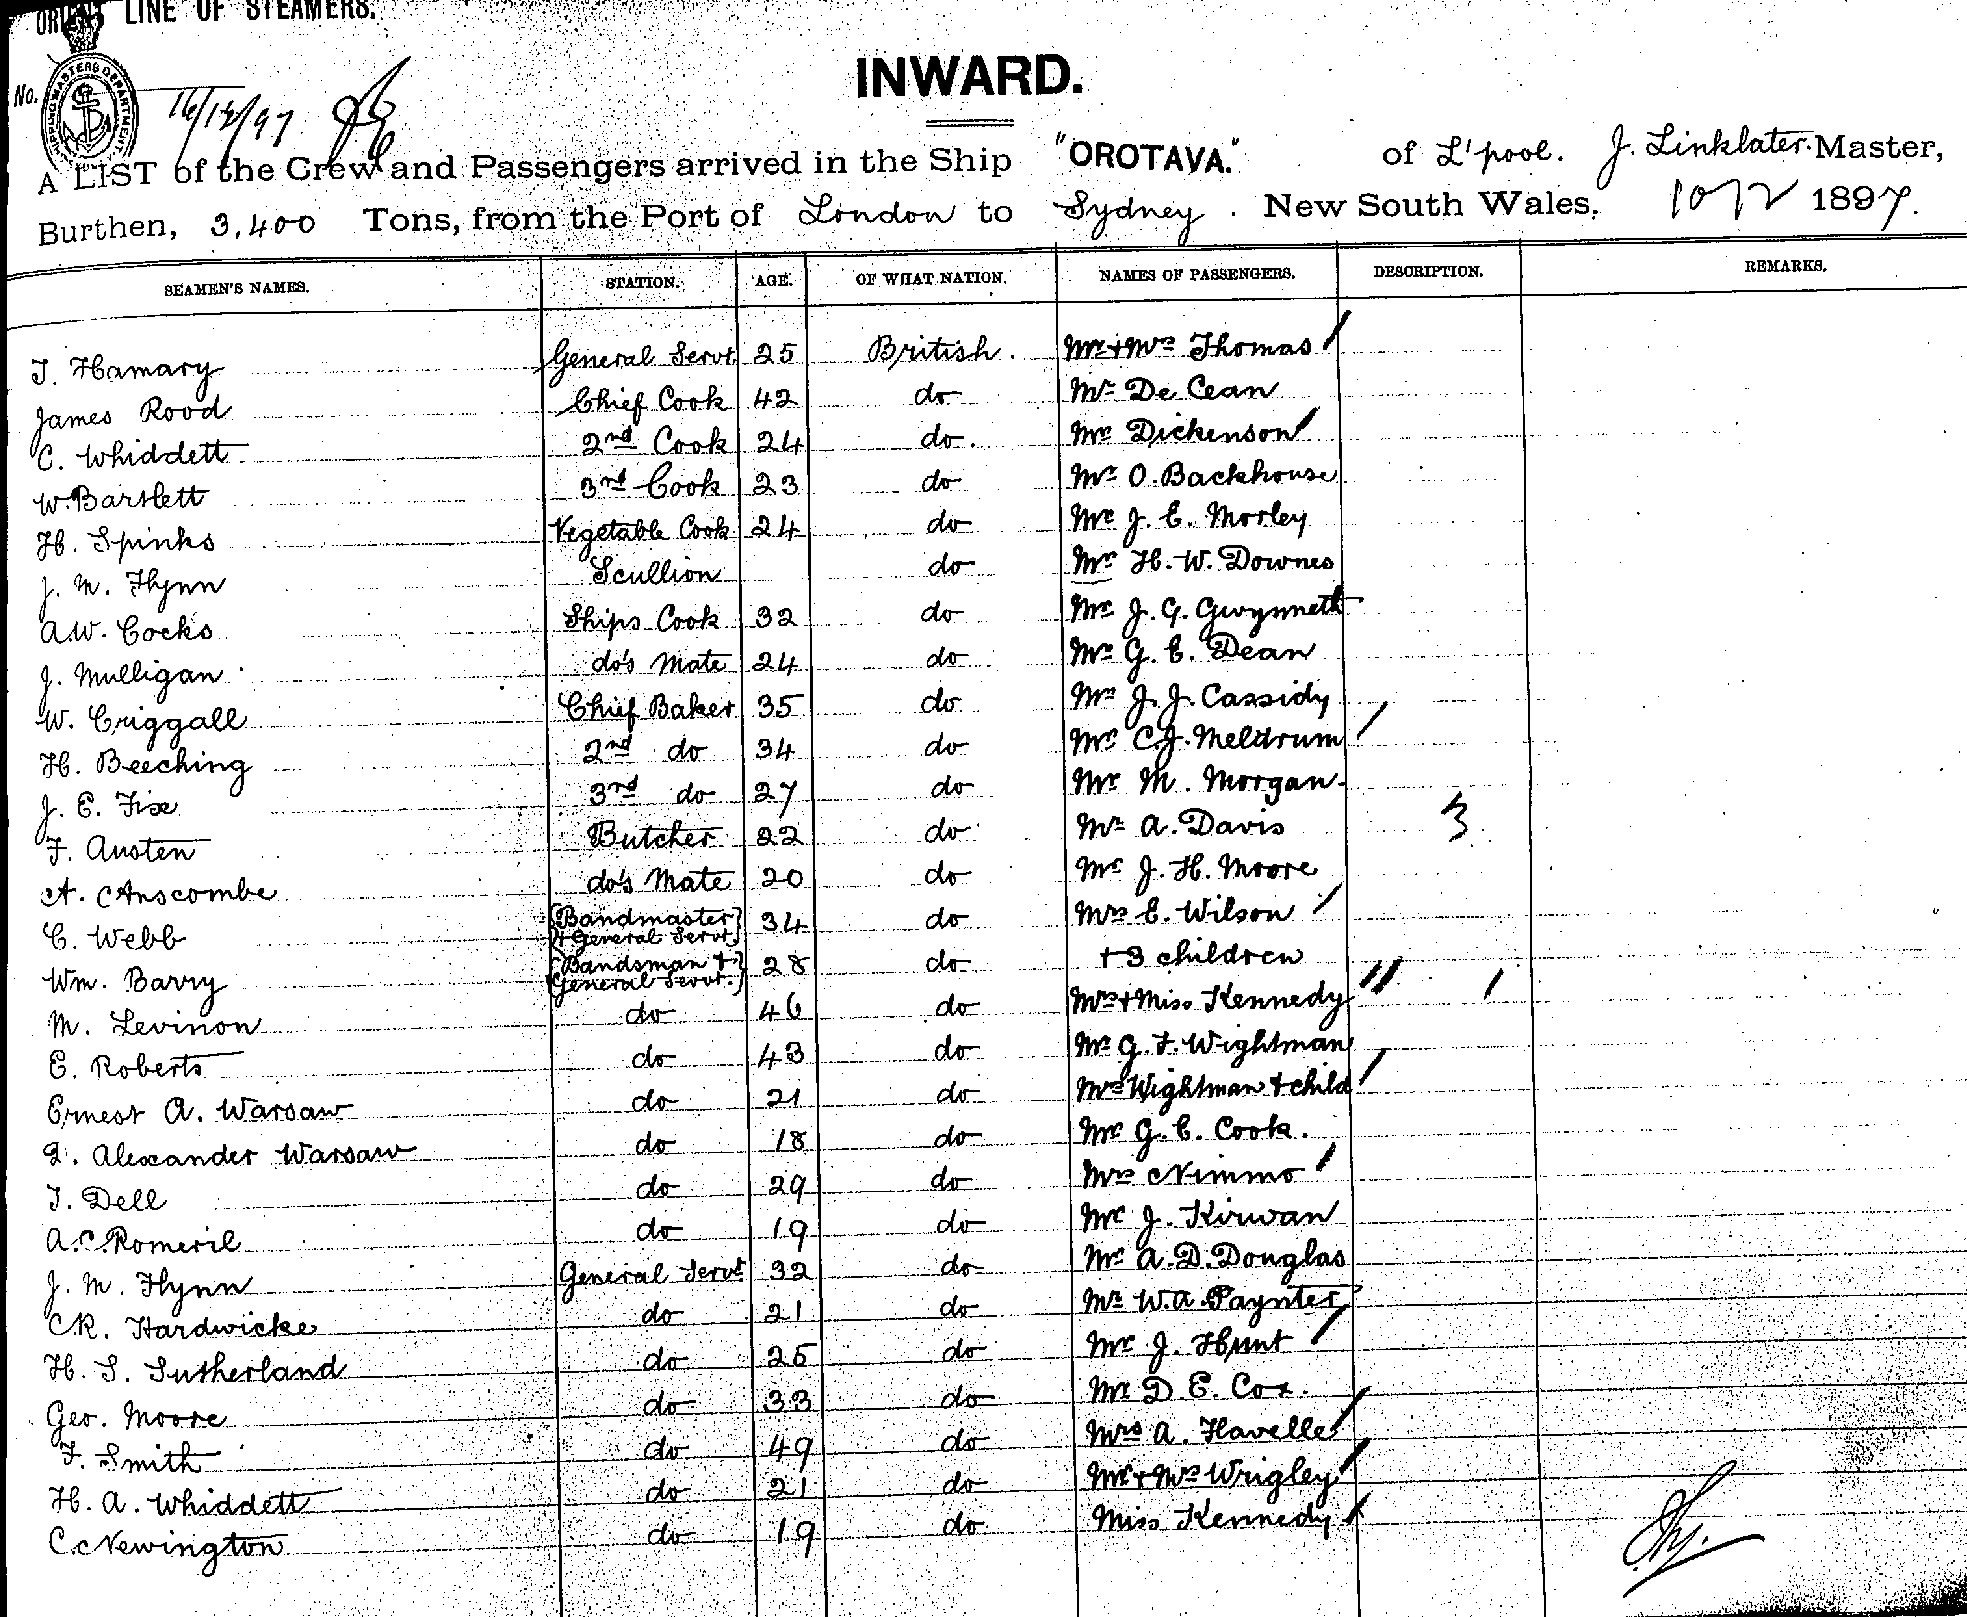 ORIENT LINE OF STEAMERS.
INWARD.
No.
SHIPPING MASTERS DEPARTMENT
16/12/97
A LIST of the Crew and Passengers arrived in the Ship "OROTAVA." of L'pool. J. Linklater Master,
Burthen, 3,400 Tons, from the Port of London to Sydney. New South Wales, 1897.
SEAMEN'S NAMES. STATION. AGE. OF WHAT NATION. NAMES OF PASSENGERS. DESCRIPTION. REMARKS.
T. Hamary General Servt 25 British. Mr + Mrs Thomas
James Rood Chief Cook 42 do Mr De Cean
C. Whiddett 2nd Cook 24 do. Mr Dickenson
W. Bartlett 3rd Cook 23 do Mr O. Backhouse
H. Spinks Vegetable Cook 24 do Mr J. E. Morley
J. M. Flynn Scullion do Mr H. W. Downes
A.W. Cocks Ships Cook 32 do Mr J. G. Gwynneth
J. Mulligan do's Mate 24 do Mr G. E. Dean
W. Criggall Chief Baker 35 do Mr J. J. Cassidy
H. Beeching 2nd do 34 do Mr C.J. Meldrum
J. E. Fise 3rd do 27 do Mr M. Morgan
F. Austen Butcher 22 do Mr A. Davis 3
A. Anscombe do's Mate 20 do Mr J. H. Moore
C. Webb {Bandmaster + General Servt} 34 do Mrs E. Wilson
Wm. Barry {Bandsman + General Servt.} 28 do + 3 children
M. Levinon do 46 do Mrs + Miss Kennedy
E. Roberts do 43 do Mr G. F. Wightman
Ernest A. Warsaw do 21 do Mrs Wightman + child
Alexander Warsaw do 18 do Mr G. E. Cook.
T. Dell do 29 do Mrs Nimmo
A.C. Romeril do 19 do Mr J. Kirwan
J. M. Flynn General Servt 32 do Mr A. D. Douglas
C.R. Hardwicke do 21 do Mr W.A. Paynter
H. S. Sutherland do 25 do Mr J. Hunt
Geo. Moore do 33 do Mr D E. Cox.
F. Smith do 49 do Mrs A. Havelle
H. A. Whiddett do 21 do Mr + Mrs Wrigley
C. Newington do 19 do Miss Kennedy